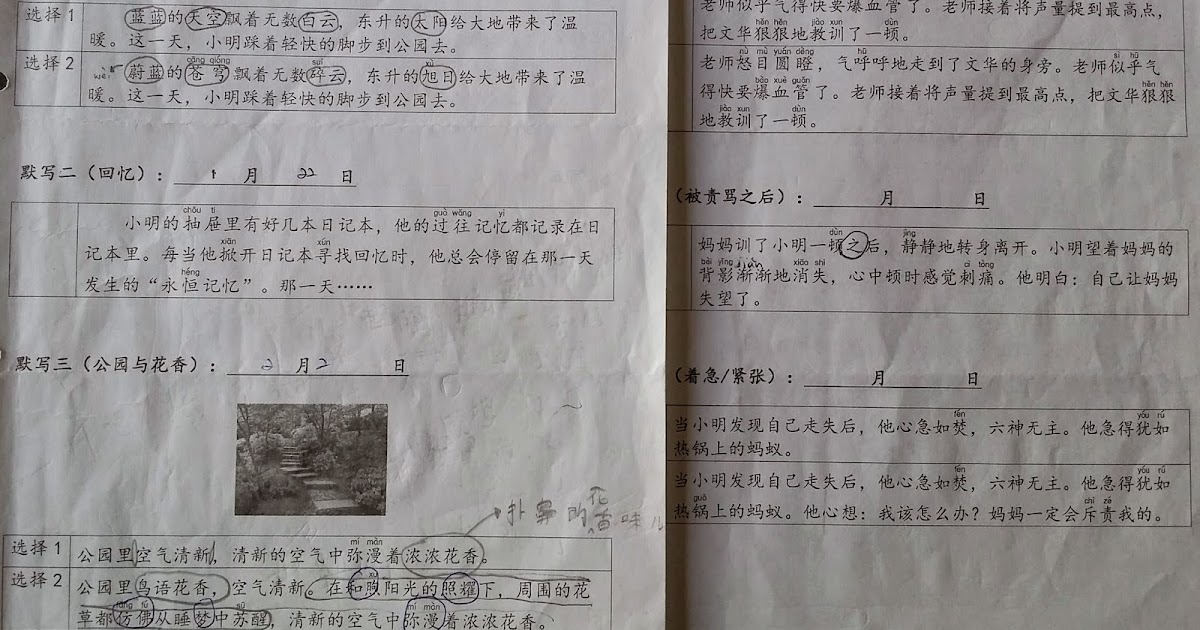 选择1
蓝蓝的天空飘着无数白云，东升的太阳给大地带来了温
暖。这一天，小明踩着轻快的脚步到公园去。
选择2
wèi
cāng qióng suì xù
蔚蓝的苍穹飘着无数碎云，东升的旭日给大地带来了温
暖。这一天，小明踩着轻快的脚步到公园去。
默写二（回忆）：1月22日
chōu tì guò wǎng yì
小明的抽屉里有好几本日记本，他的过往记忆都记录在日
xiān xún
记本里。每当他掀开日记本寻找回忆时，他总会停留在那一天
héng
发生的“永恒记忆”。那一天……
默写三（公园与花香）：2月2日
扑鼻的花香味儿
选择1
mí màn
公园里空气清新，清新的空气中弥漫着浓浓花香。
选择2
xù
公园里鸟语花香，空气清新。在和煦阳光的照耀下，周围的花
fǎng fú sū mí màn
草都仿佛从睡梦中苏醒，清新的空气中弥漫着浓浓花香。
老师似乎气得快要爆血管了。老师接着将声量提到最高点，
hěn hěn jiào xun dùn
把文华狠狠地教训了一顿。
nù mù yuán dèng hū sì hū
老师怒目圆瞪，气呼呼地走到了文华的身旁。老师似乎气
bào xuè guǎn hěn hěn
得快要爆血管了。老师接着将声量提到最高点，把文华狠狠
jiào xun dùn
地教训了一顿。
（被责骂之后）：月日
dùn jìng
妈妈训了小明一顿之后，静静地转身离开。小明望着妈妈的
bèi yǐng xiāo shī cì tòng
背影渐渐地消失，心中顿时感觉刺痛。他明白：自己让妈妈
失望了。
（着急/紧张）：月日
fén yóu rú
当小明发现自己走失后，他心急如焚，六神无主。他急得犹如
热锅上的蚂蚁。
fén yóu rú
当小明发现自己走失后，他心急如焚，六神无主。他急得犹如
guō chì zé
热锅上的蚂蚁。他心想：我该怎么办？妈妈一定会斥责我的。